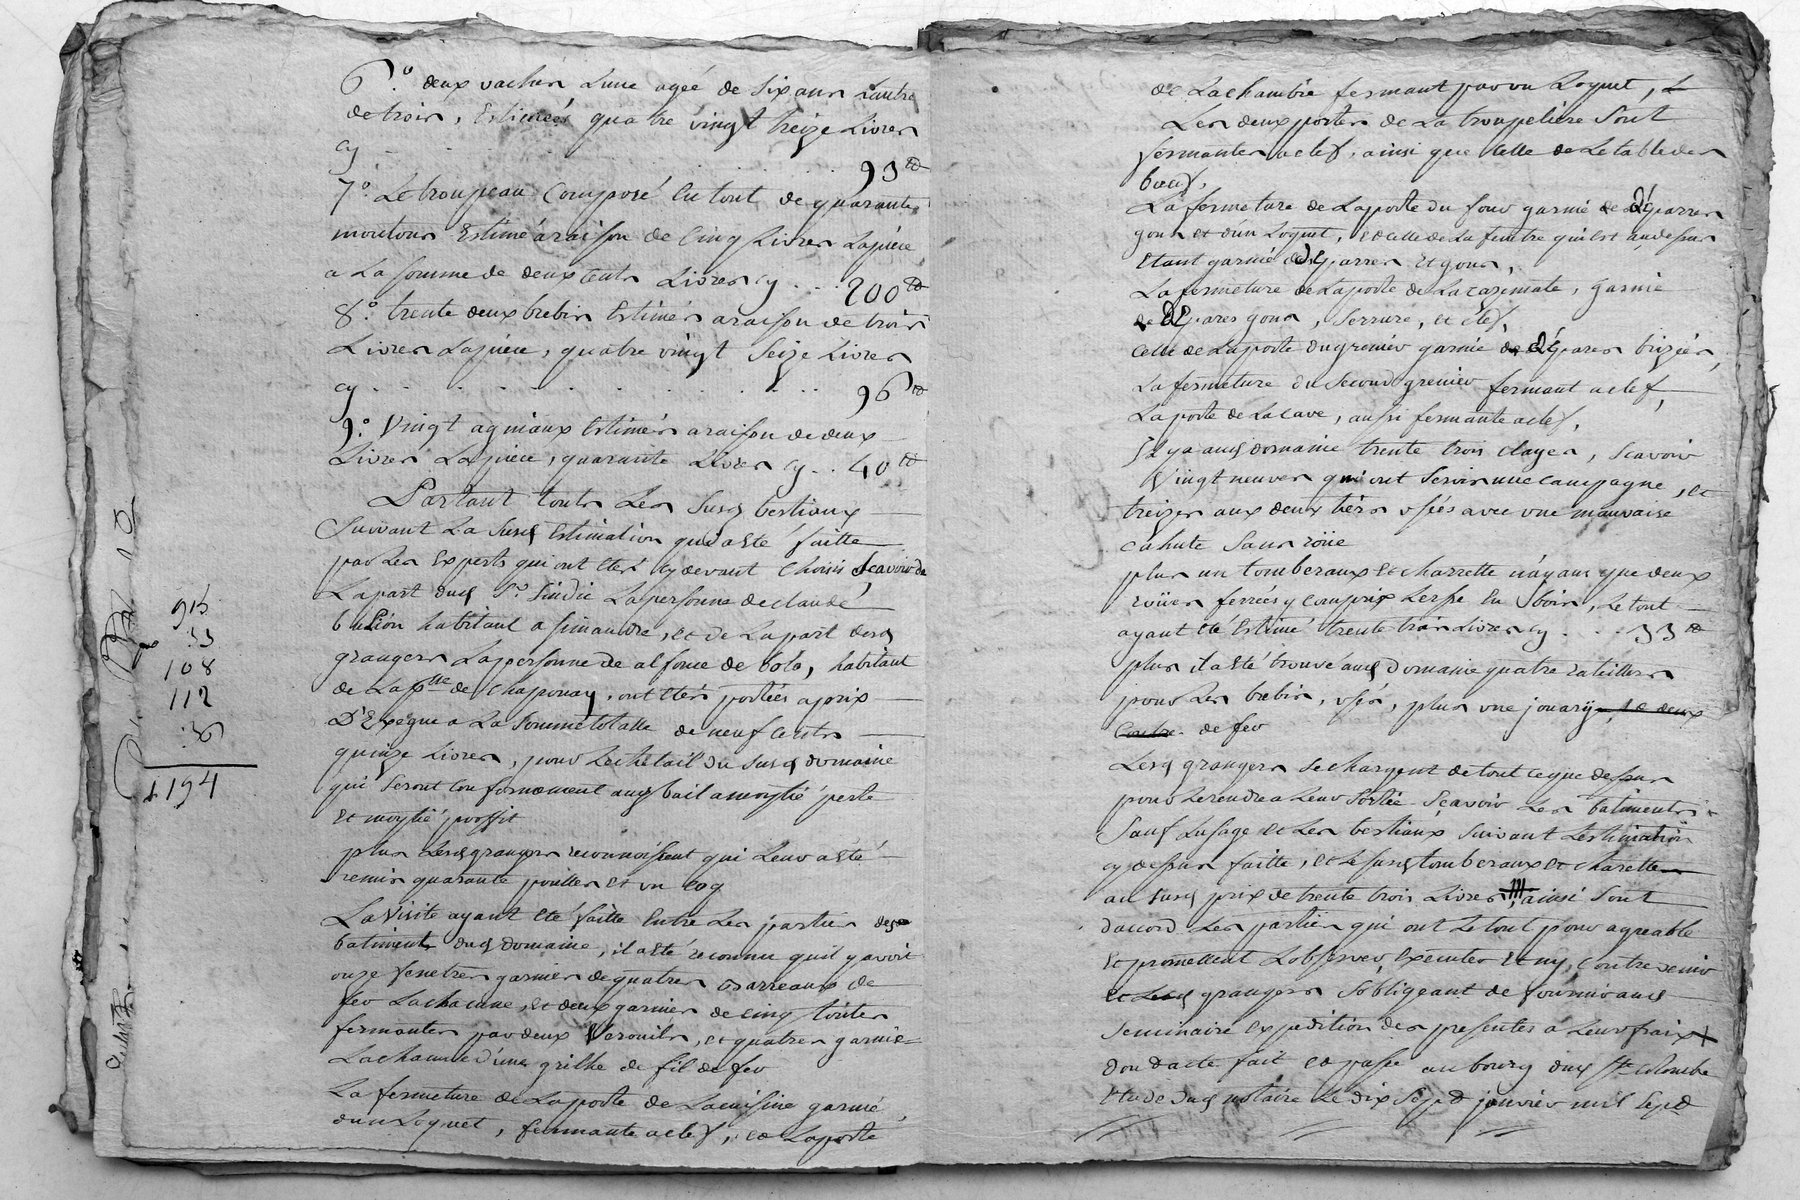 6.° deux vaches Lune agée de six ans Lautre
de trois, Estimées quatre vingt treize Livres
cy . 93 ₶
7.° Le troupeau Composé En tout de quarante
moutons Estimé a raison de Cinq Livres La piece
a La somme de deux cents Livres cy ... 200 ₶
8.° trente deux brebis Estimés a raison de trois
Livres La piece, quatre vingt seize Livres
cy . . . . . . . . 96 ₶
9.° vingt agniaux Estimés a raison de deux
Livres La piece, quarante Livres cy .. 40 ₶
Partant touts Les susd bestiaux
suivant La susd Estimation qui a esté faitte
par Les Experts qui ont étés cy devant choisis scavoir de
La part dud Sr. sindic La personne de claude
habitant a simandre, et de La part desd
grangers La personne de alfonce de bolo, habitant
de La psse de chaponay, ont étés portées a prix
D'Exegue a La somme totalle de neuf cents
quinze Livres, pour Le chetail du susd domaine
qui seront conformement aud bail a moytié perte
et moytié proffit
plus Lesd grangers reconnoissent qui Leur a esté
remis quarante poulles et un coq
La visite ayant été faitte Entre Les parties des
batiments dud domaine, il a esté reconnu quil y avoit
onze fenetres garnies de quatres barreaux de
fer Lachacune, et deux garnies de cinq toutes
fermantes par deux verouils, et quatres garnie
Lachacune d'une grilhe de fil de fer
La fermeture de La porte de La cuisine garnie
dun Loquet, fermante a clef, et La porte
915
33
108
112
36
1194
de La chambre fermant par un Loquet,
Les deux portes de La troupeliere sont
fermantes a clef, ainsi que celle de Letable des
bœufs,
La fermeture de La porte du four garnie de Eparres
gons et dun Loquet, et celle de La fentre qui est au dessus
Etant garnie d'Eparres et gons,
La fermeture de La porte de La cazemate, garnie
de Epares gons, serrure, et clef,
celle de La porte du grenier garnie de Epares brizées,
La fermeture du second grenier fermant a clef,
La porte de La cave, aussi fermante a clef,
Il y a aud domaine trente trois clayes, scavoir
vingt neuves qui ont servis une campagne, et
treizes aux deux tiers usés avec une mauvaise
cahute sans roüe
plus un tomberaux et charrette n'ayans que deux
roües ferrées y compris Lerse En bois, Le tout
ayant été Estimé trente trois Livres cy ... 33 ₶
plus il a esté trouvé aud domaine quatre rateilliers
pour Les brebis, usés, plus une jouary, et deux
Coutre de fer
Lesd grangers se chargent de tout ce que dessus
pour Le rendre a Leur sortie scavoir Les batiments
sauf Lusage et Les bestiaux suivant Lestimation
cy dessus faitte, et Le susd tomberaux et charette
au susd prix de trente trois Livres, ainsi sont
daccord Les parties qui ont Le tout pour agreable
et promettent Lobserver, Executer et ny Contrevenir
et Lesd grangers sobligeant de fournir aud
seminaire expedition des presentes a Leurs fraix +
dont acte fait et passé au bourg dud Ste. Colombe
Etude dud notaire Le dix sept janvier mil sept